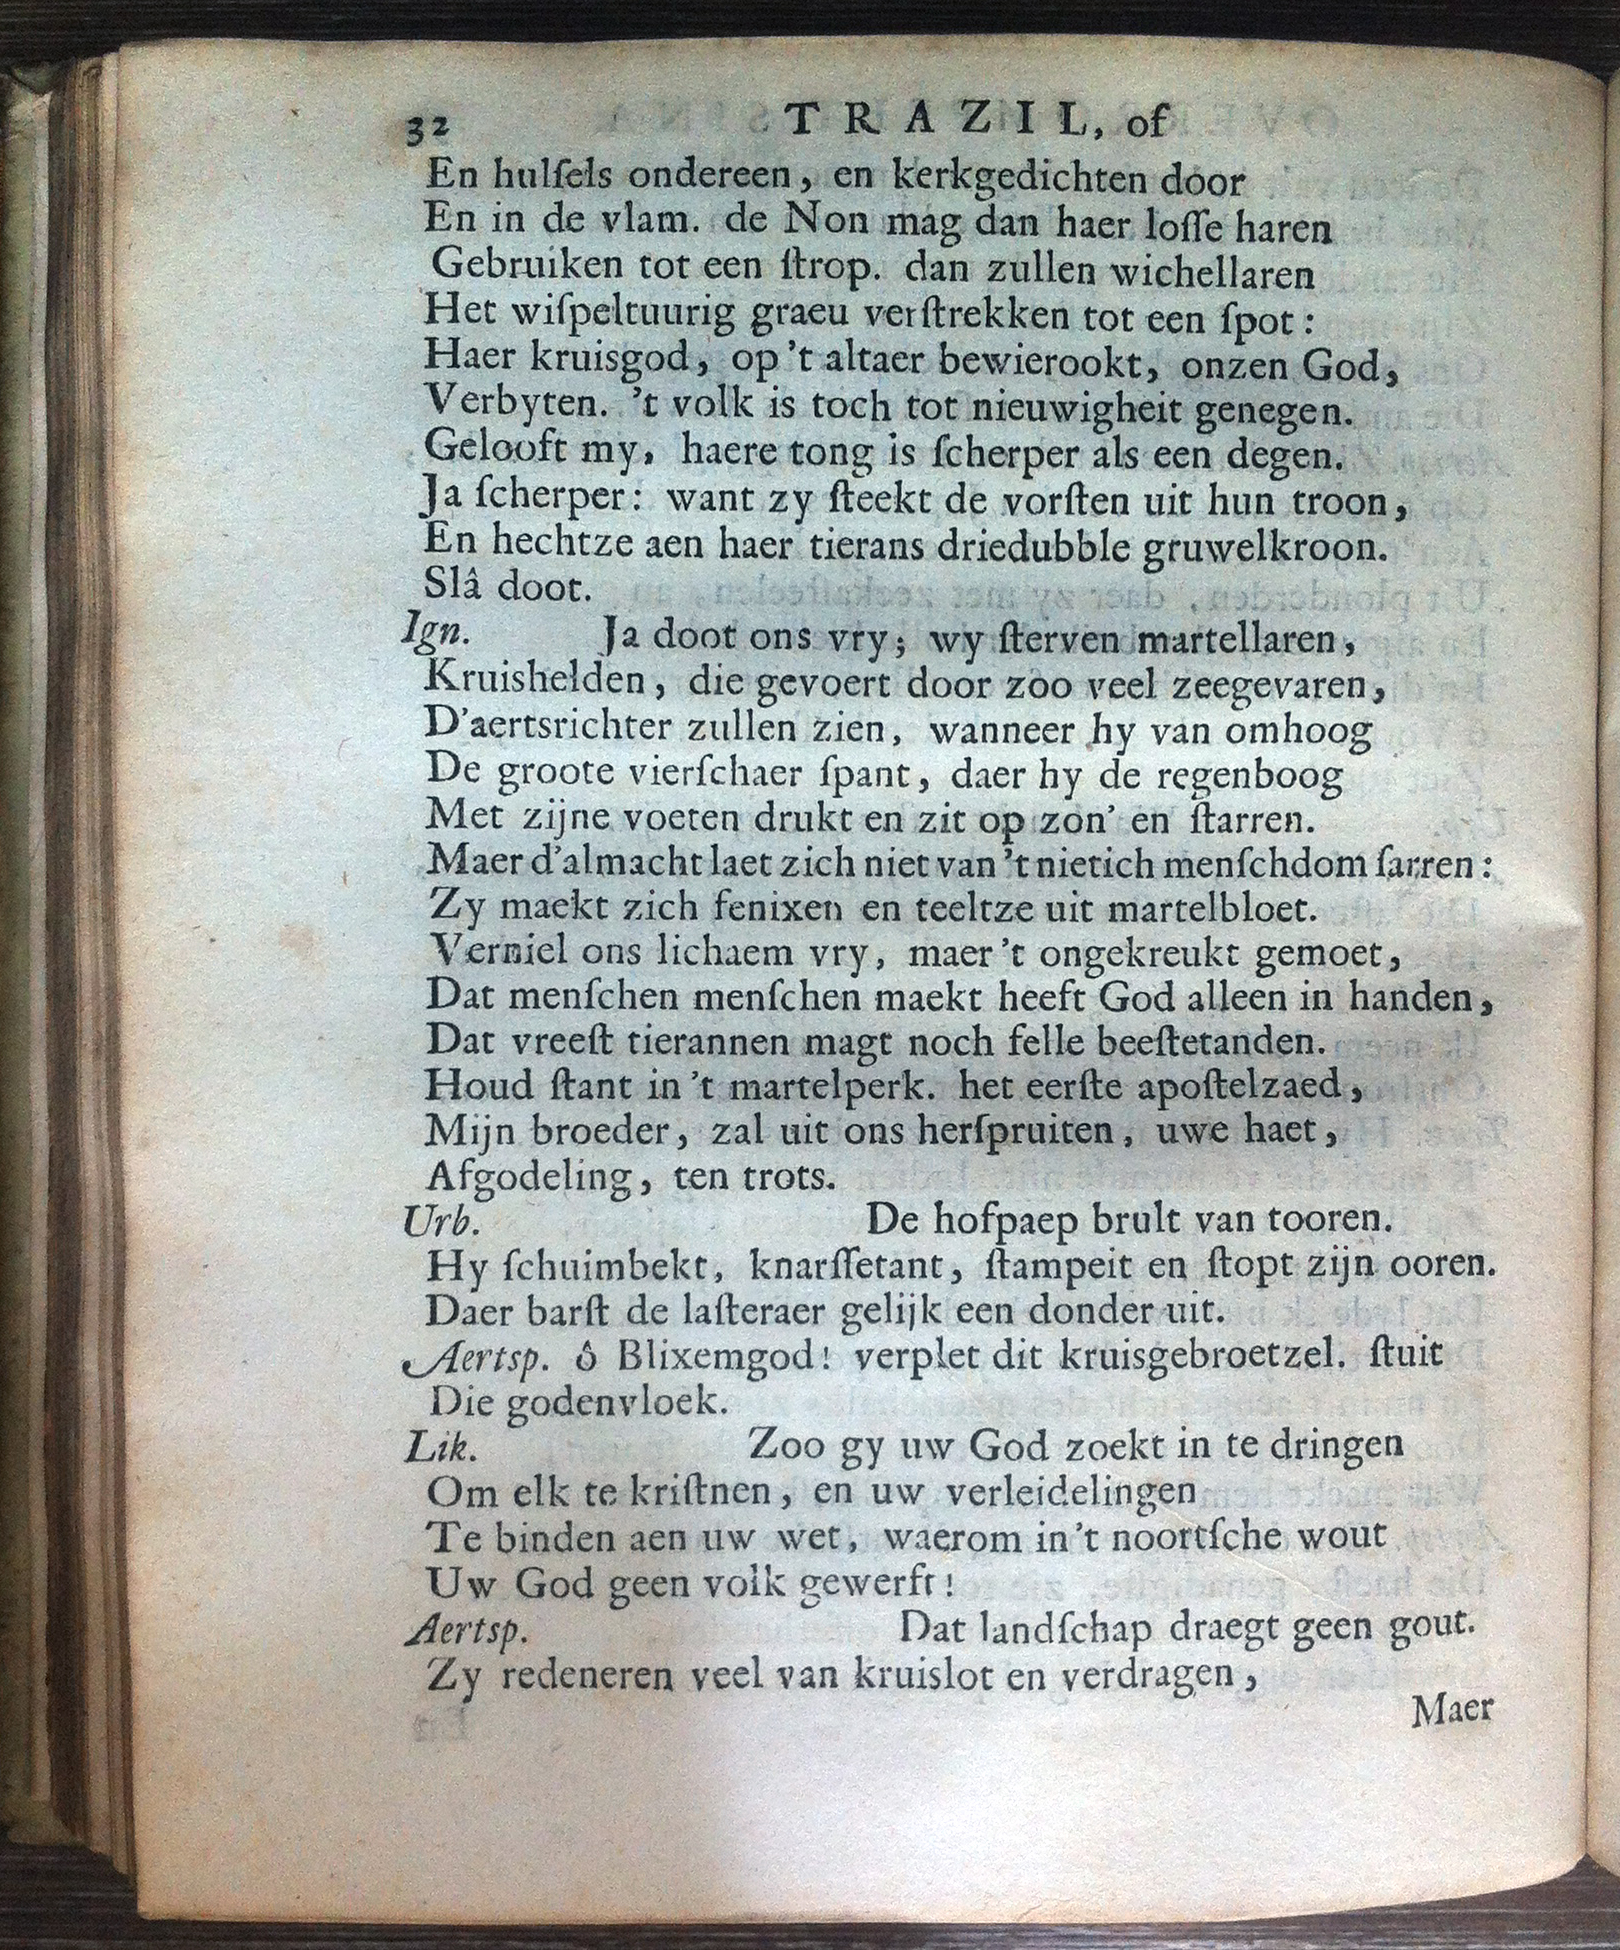 32 TRAZIL, of
En hulſels ondereen, en kerkgedichten door
En in de vlam. de Non mag dan haer loſſe haren
Gebruiken tot een ſtrop. dan zullen wichellaren
Het wiſpeltuurig graeu verſtrekken tot een ſpot:
Haer kruisgod, op 't altaer bewierookt, onzen God,
Verbyten. 't volk is toch tot nieuwigheit genegen.
Gelooft my, haere tong is ſcherper als een degen.
Ja ſcherper: want zy ſteekt de vorſten uit hun troon,
En hechtze aen haer tierans driedubble gruwelkroon.
Slâ doot.
Ign. Ja doot ons vry; wy ſterven martellaren,
Kruishelden, die gevoert door zoo veel zeegevaren,
D'aertsrichter zullen zien, wanneer hy van omhoog
De groote vierſchaer ſpant, daer hy de regenboog
Met zijne voeten drukt en zit op zon' en ſtarren.
Maer d'almacht laet zich niet van 't nietich menſchdom ſarren:
Zy maekt zich fenixen en teeltze uit martelbloet.
Verniel ons lichaem vry, maer 't ongekreukt gemoet,
Dat menſchen menſchen maekt heeft God alleen in handen,
Dat vreeſt tierannen magt noch felle beeſtetanden.
Houd ſtant in 't martelperk. het eerſte apoſtelzaed,
Mijn broeder, zal uit ons herſpruiten, uwe haet,
Afgodeling, ten trots.
Urb. De hofpaep brult van tooren.
Hy ſchuimbekt, knarſſetant, ſtampeit en ſtopt zijn ooren.
Daer barſt de laſteraer gelijk een donder uit.
Aertsp. ô Blixemgod! verplet dit kruisgebroetzel. ſtuit
Die godenvloek.
Lik. Zoo gy uw God zoekt in te dringen
Om elk te kriſtnen, en uw verleidelingen
Te binden aen uw wet, waerom in 't noortſche wout
Uw God geen volk gewerft!
Aertsp. Dat landſchap draegt geen gout.
Zy redeneren veel van kruislot en verdragen,
Maer